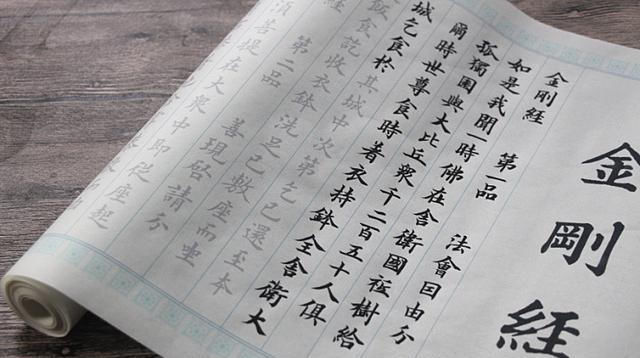 金剛経
金剛経 第一品 法會因由分
如是我聞一時佛在舎衛國祇樹給
孤獨園與大比丘衆千二百五十人俱
爾時世尊食時著衣持鉢全舎衛大
城乞食於其城中次第乞已還至本
飯食訖收衣鉢洗足已敷座而坐
経 第二品 善現啓請分
須菩提在大衆中即從座起